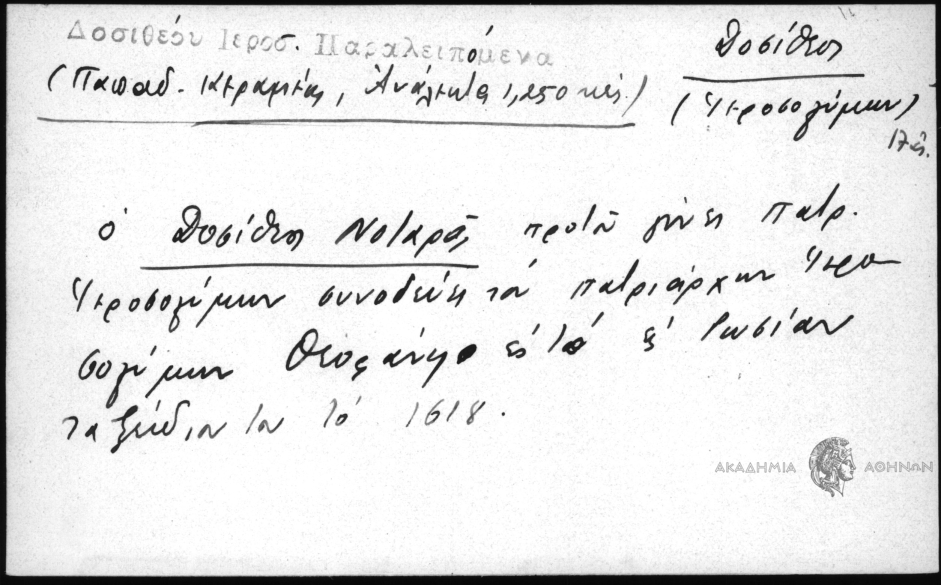 Δοσιθέου Ιεροσ. Παραλειπόμενα
(Παπαδ. Κεραμέως, Ἀνάλεκτα 1,250 κἑξ.)
Δοσίθεος
(Ἱεροσολύμων)
17 αἰ.
ὁ Δοσίθεος Νοταρᾶς προτοῦ γίνει πατρ.
Ἱεροσολύμων συνοδεύει τὸν πατριάρχην Ἱερο-
σολύμων Θεοφάνην εἰς τὸ εἰς Ρωσίαν
ταξίδιον του τὸ 1618.
ΑΚΑΔΗΜΙΑ ΑΘΗΝΩΝ